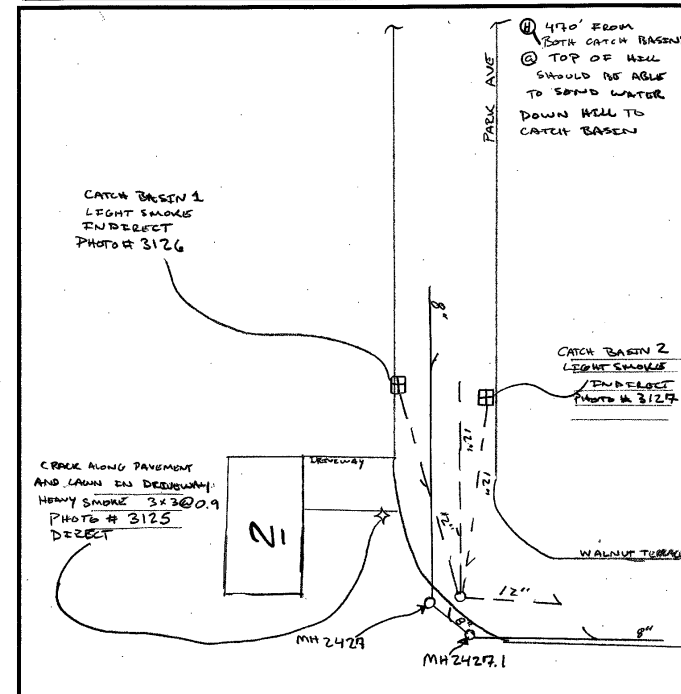 H 470' FROM
BOTH CATCH BASINS
@ TOP OF HILL
SHOULD BE ABLE
TO SEND WATER
DOWN HILL TO
CATCH BASIN
PARK AVE
CATCH BASIN 1
LIGHT SMOKE
INDIRECT
PHOTO # 3126
8"
CATCH BASIN 2
LIGHT SMOKE
INDIRECT
PHOTO # 3127
12"
12"
12"
DRIVEWAY
CRACK ALONG PAVEMENT
AND LAWN IN DRIVEWAY
HEAVY SMOKE 3x3@0.9
PHOTO # 3125
DIRECT
2
WALNUT TERRACE
12"
8"
8"
MH 2427
MH 2427.1